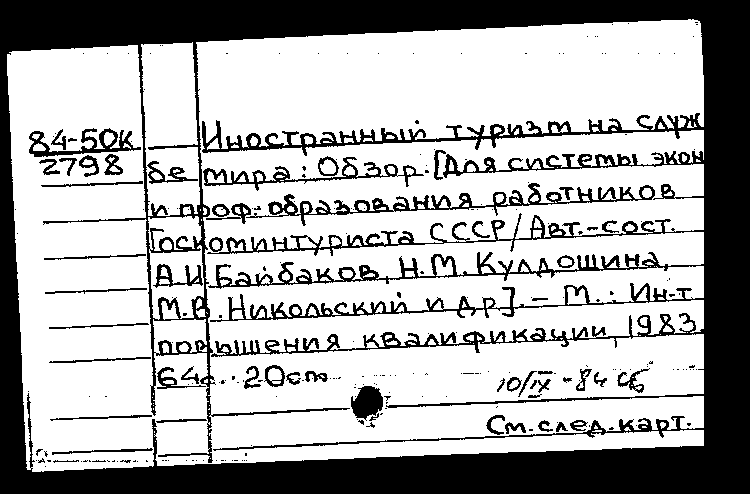 84-50К
2798
Иностранный туризм на служ
бе мира: Обзор. [Для системы экон
и проф. образования работников
Госкоминтуриста СССР / Авт.-сост.
А.И. Байбаков, Н.М. Кулдошина,
М.В. Никольский и др]. - М.: Ин-т
повышения квалификации, 1983.
64с.. 20см
10/IX-84 сб
См. след. карт.